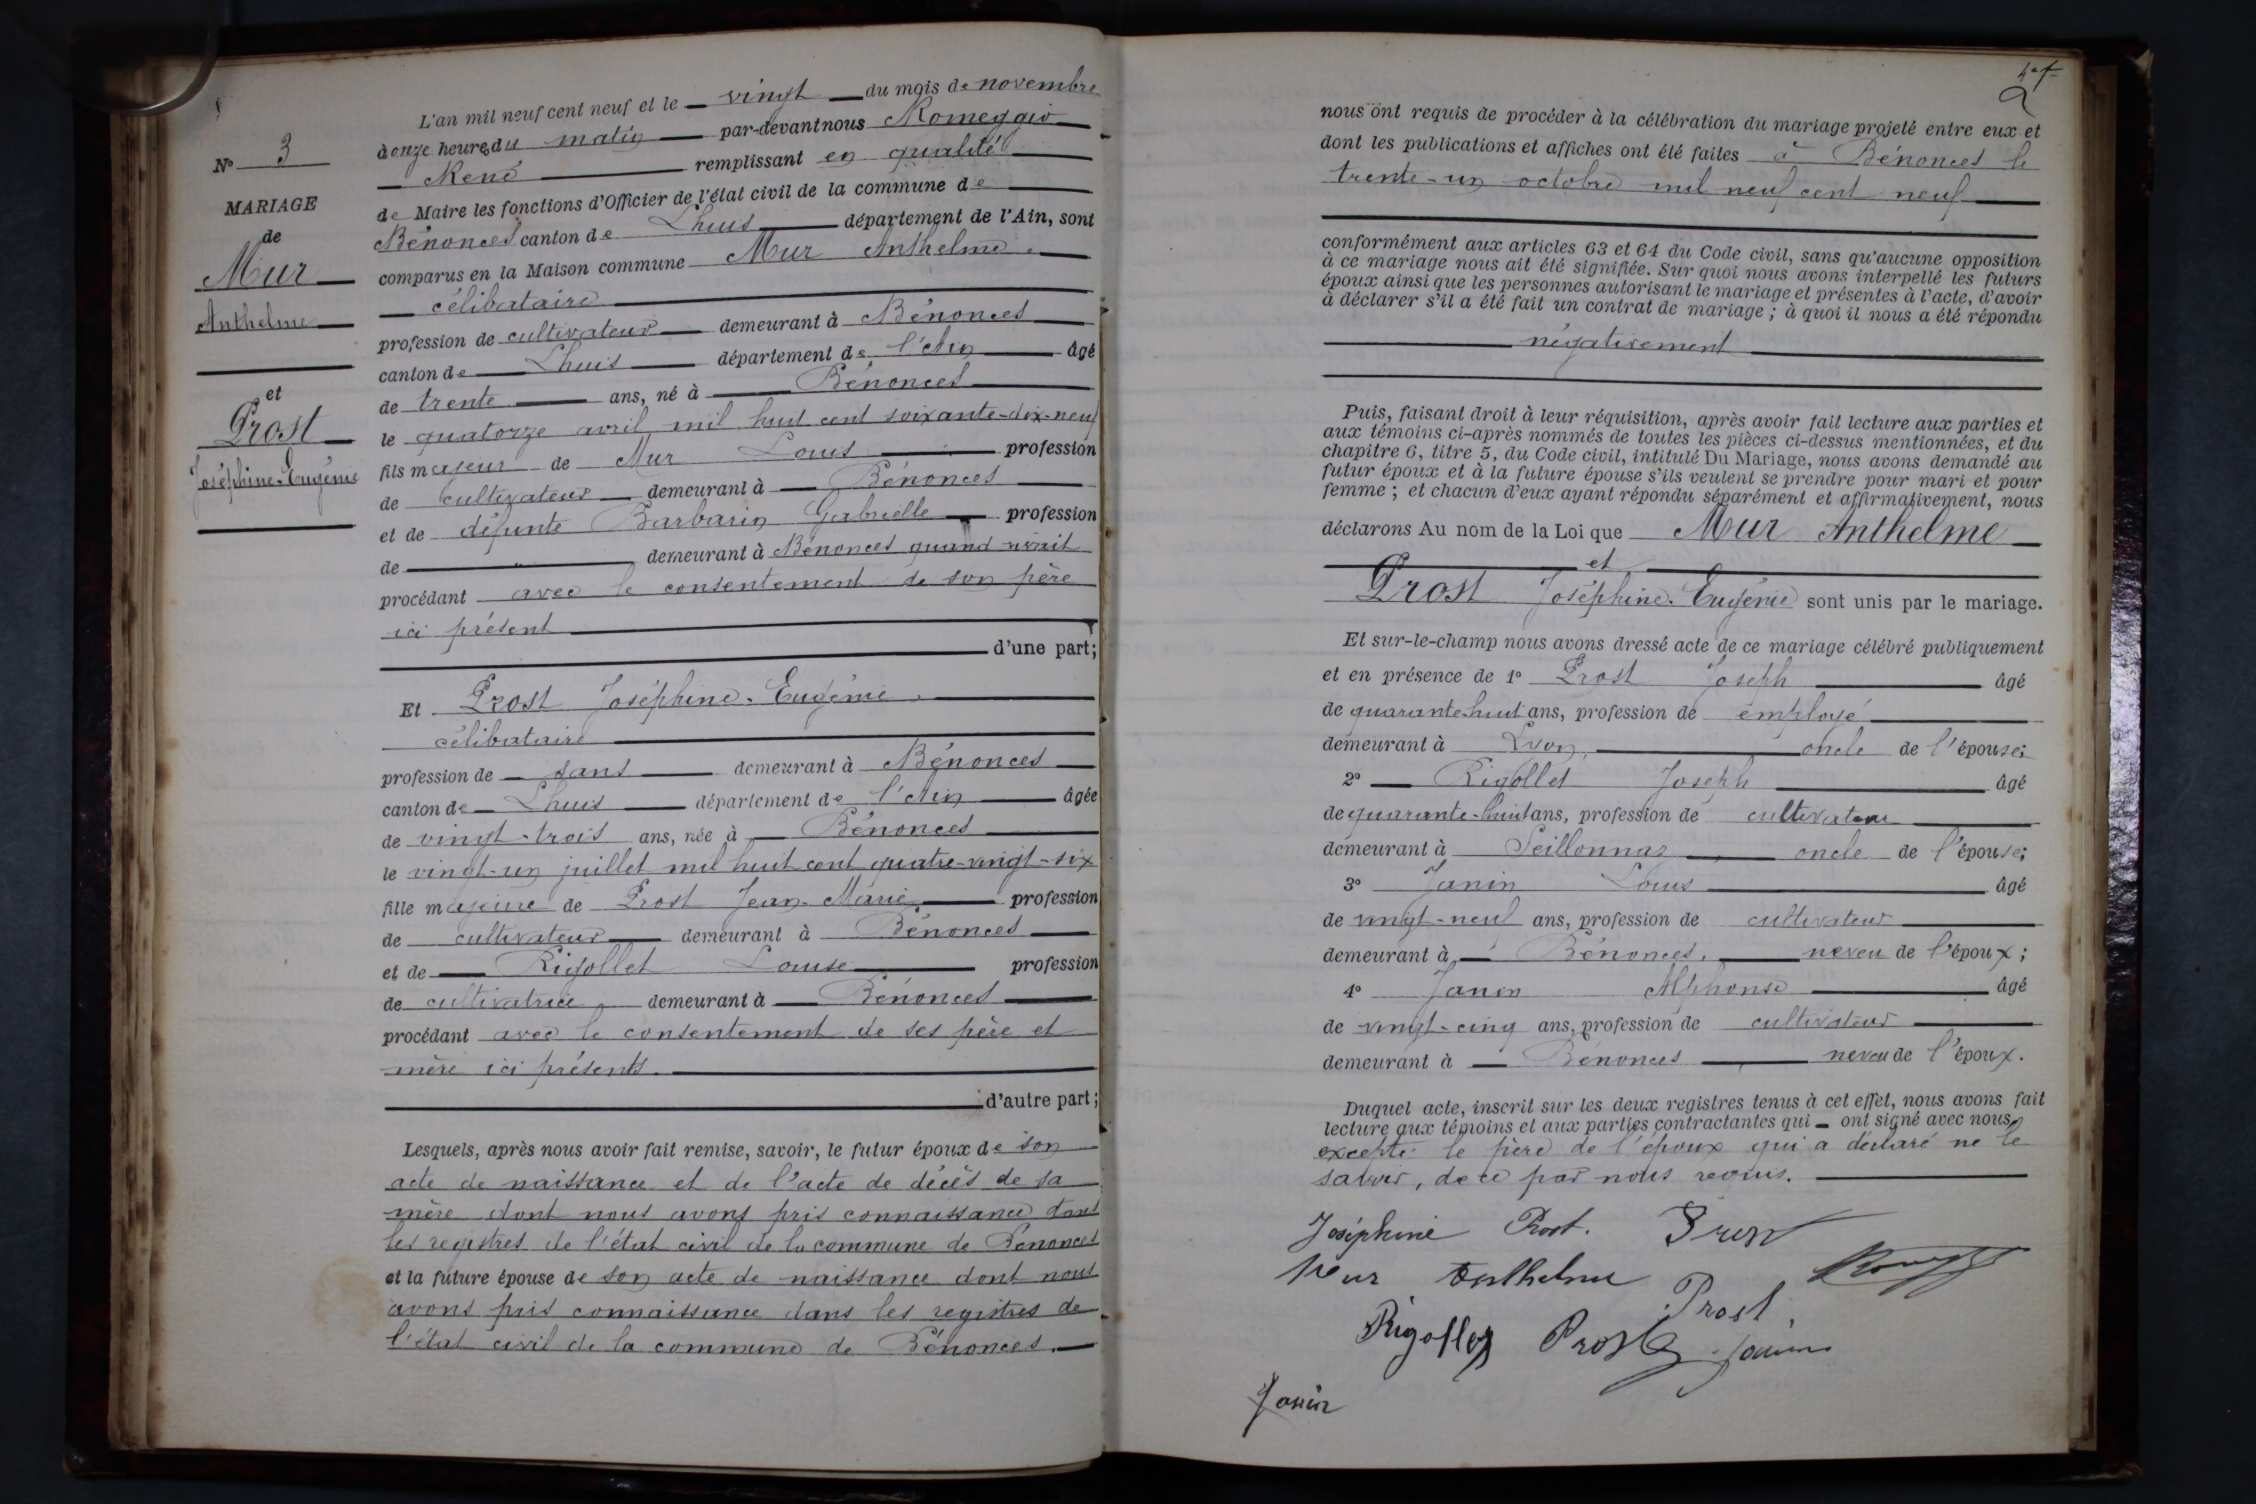 N° 3
MARIAGE
de
Mur
Anthelme
et
Prost
Joséphine-Eugénie
L'an mil neuf cent neuf et le vingt du mois de novembre
à onze heures du matin par-devant nous Romeggio
René remplissant en qualité
de Maire les fonctions d'Officier de l'état civil de la commune de
Bénonces canton de Lhuis département de l'Ain, sont
comparus en la Maison commune Mur Anthelme.
célibataire
profession de cultivateur demeurant à Bénonces
canton de Lhuis département de l'Ain âgé
de trente ans, né à Bénonces
le quatorze avril mil huit cent soixante-dix-neuf
fils majeur de Mur Louis profession
de cultivateur demeurant à Bénonces
et de défunte Barbarin Gabrielle profession
de demeurant à Bénonces quand vivait
procédant avec le consentement de son père
ici présent
d'une part;
Et Prost Joséphine-Eugénie.
célibataire
profession de sans demeurant à Bénonces
canton de Lhuis département de l'Ain âgée
de vingt-trois ans, née à Bénonces
le vingt-un juillet mil huit cent quatre-vingt-six
fille majeure de Prost Jean-Marie profession
de cultivateur demeurant à Bénonces
et de Rigollet Louise profession
de cultivatrice demeurant à Bénonces
procédant avec le consentement de ses père et
mère ici présents.
d'autre part;
Lesquels, après nous avoir fait remise, savoir, le futur époux de son
acte de naissance et de l'acte de décès de sa
mère dont nous avons pris connaissance dans
les registres de l'état civil de la commune de Bénonces
et la future épouse de son acte de naissance dont nous
avons pris connaissance dans les registres de
l'état civil de la commune de Bénonces.
2
nous ont requis de procéder à la célébration du mariage projeté entre eux et
dont les publications et affiches ont été faites à Bénonces le
trente-un octobre mil neuf cent neuf
conformément aux articles 63 et 64 du Code civil, sans qu'aucune opposition
à ce mariage nous ait été signifiée. Sur quoi nous avons interpellé les futurs
époux ainsi que les personnes autorisant le mariage et présentes à l'acte, d'avoir
à déclarer s'il a été fait un contrat de mariage ; à quoi il nous a été répondu
négativement
Puis, faisant droit à leur réquisition, après avoir fait lecture aux parties et
aux témoins ci-après nommés de toutes les pièces ci-dessus mentionnées, et du
chapitre 6, titre 5, du Code civil, intitulé Du Mariage, nous avons demandé au
futur époux et à la future épouse s'ils veulent se prendre pour mari et pour
femme ; et chacun d'eux ayant répondu séparément et affirmativement, nous
déclarons Au nom de la Loi que Mur Anthelme
et
Prost Joséphine-Eugénie sont unis par le mariage.
Et sur-le-champ nous avons dressé acte de ce mariage célébré publiquement
et en présence de 1° Prost Joseph âgé
de quarante-huit ans, profession de employé
demeurant à Lyon, oncle de l'épouse;
2° Rigollet Joseph âgé
de quarante-huit ans, profession de cultivateur
demeurant à Seillonnaz, oncle de l'épouse;
3° Janin Louis âgé
de vingt-neuf ans, profession de cultivateur
demeurant à Bénonces, neveu de l'époux;
4° Janin Alphonse âgé
de vingt-cinq ans, profession de cultivateur
demeurant à Bénonces, neveu de l'époux.
Duquel acte, inscrit sur les deux registres tenus à cet effet, nous avons fait
lecture aux témoins et aux parties contractantes qui ont signé avec nous,
excepté le père de l'époux qui a déclaré ne le
savoir, de ce par nous requis.
Joséphine Prost. Prost
Mur Anthelme
Prost
Rigollet Prost Janin
Janin